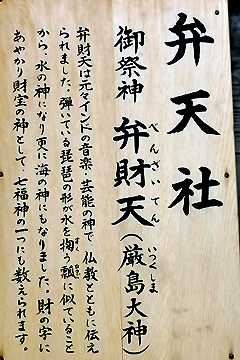 弁天社
御祭神 弁財天(厳島大神)
べんざいてん
いつくしま
弁財天は元々インドの音楽・芸能の神で、仏教とともに伝え
られました。弾いている琵琶の形が水を掬う瓢に似ていること
すく
から、水の神になり更に海の神にもなりました。財の字に
あやかり財宝の神として、七福神の一つにも数えられます。